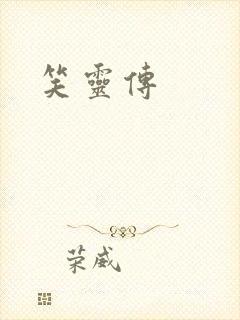 笑靈傳
荣威